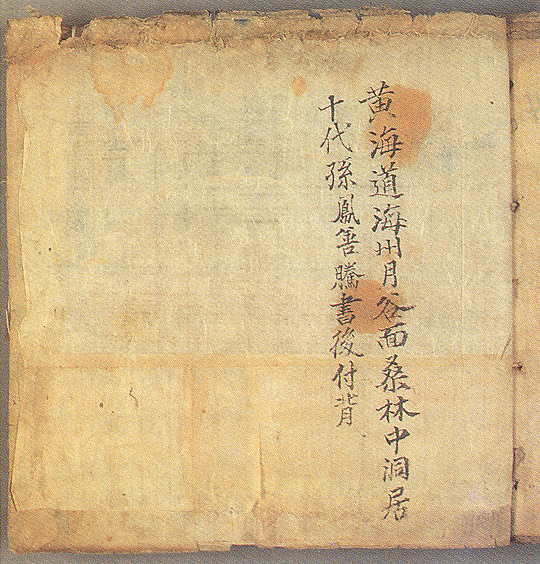 黄海道海州月谷面桑林中洞居
十代孫鳳善騰書後付背